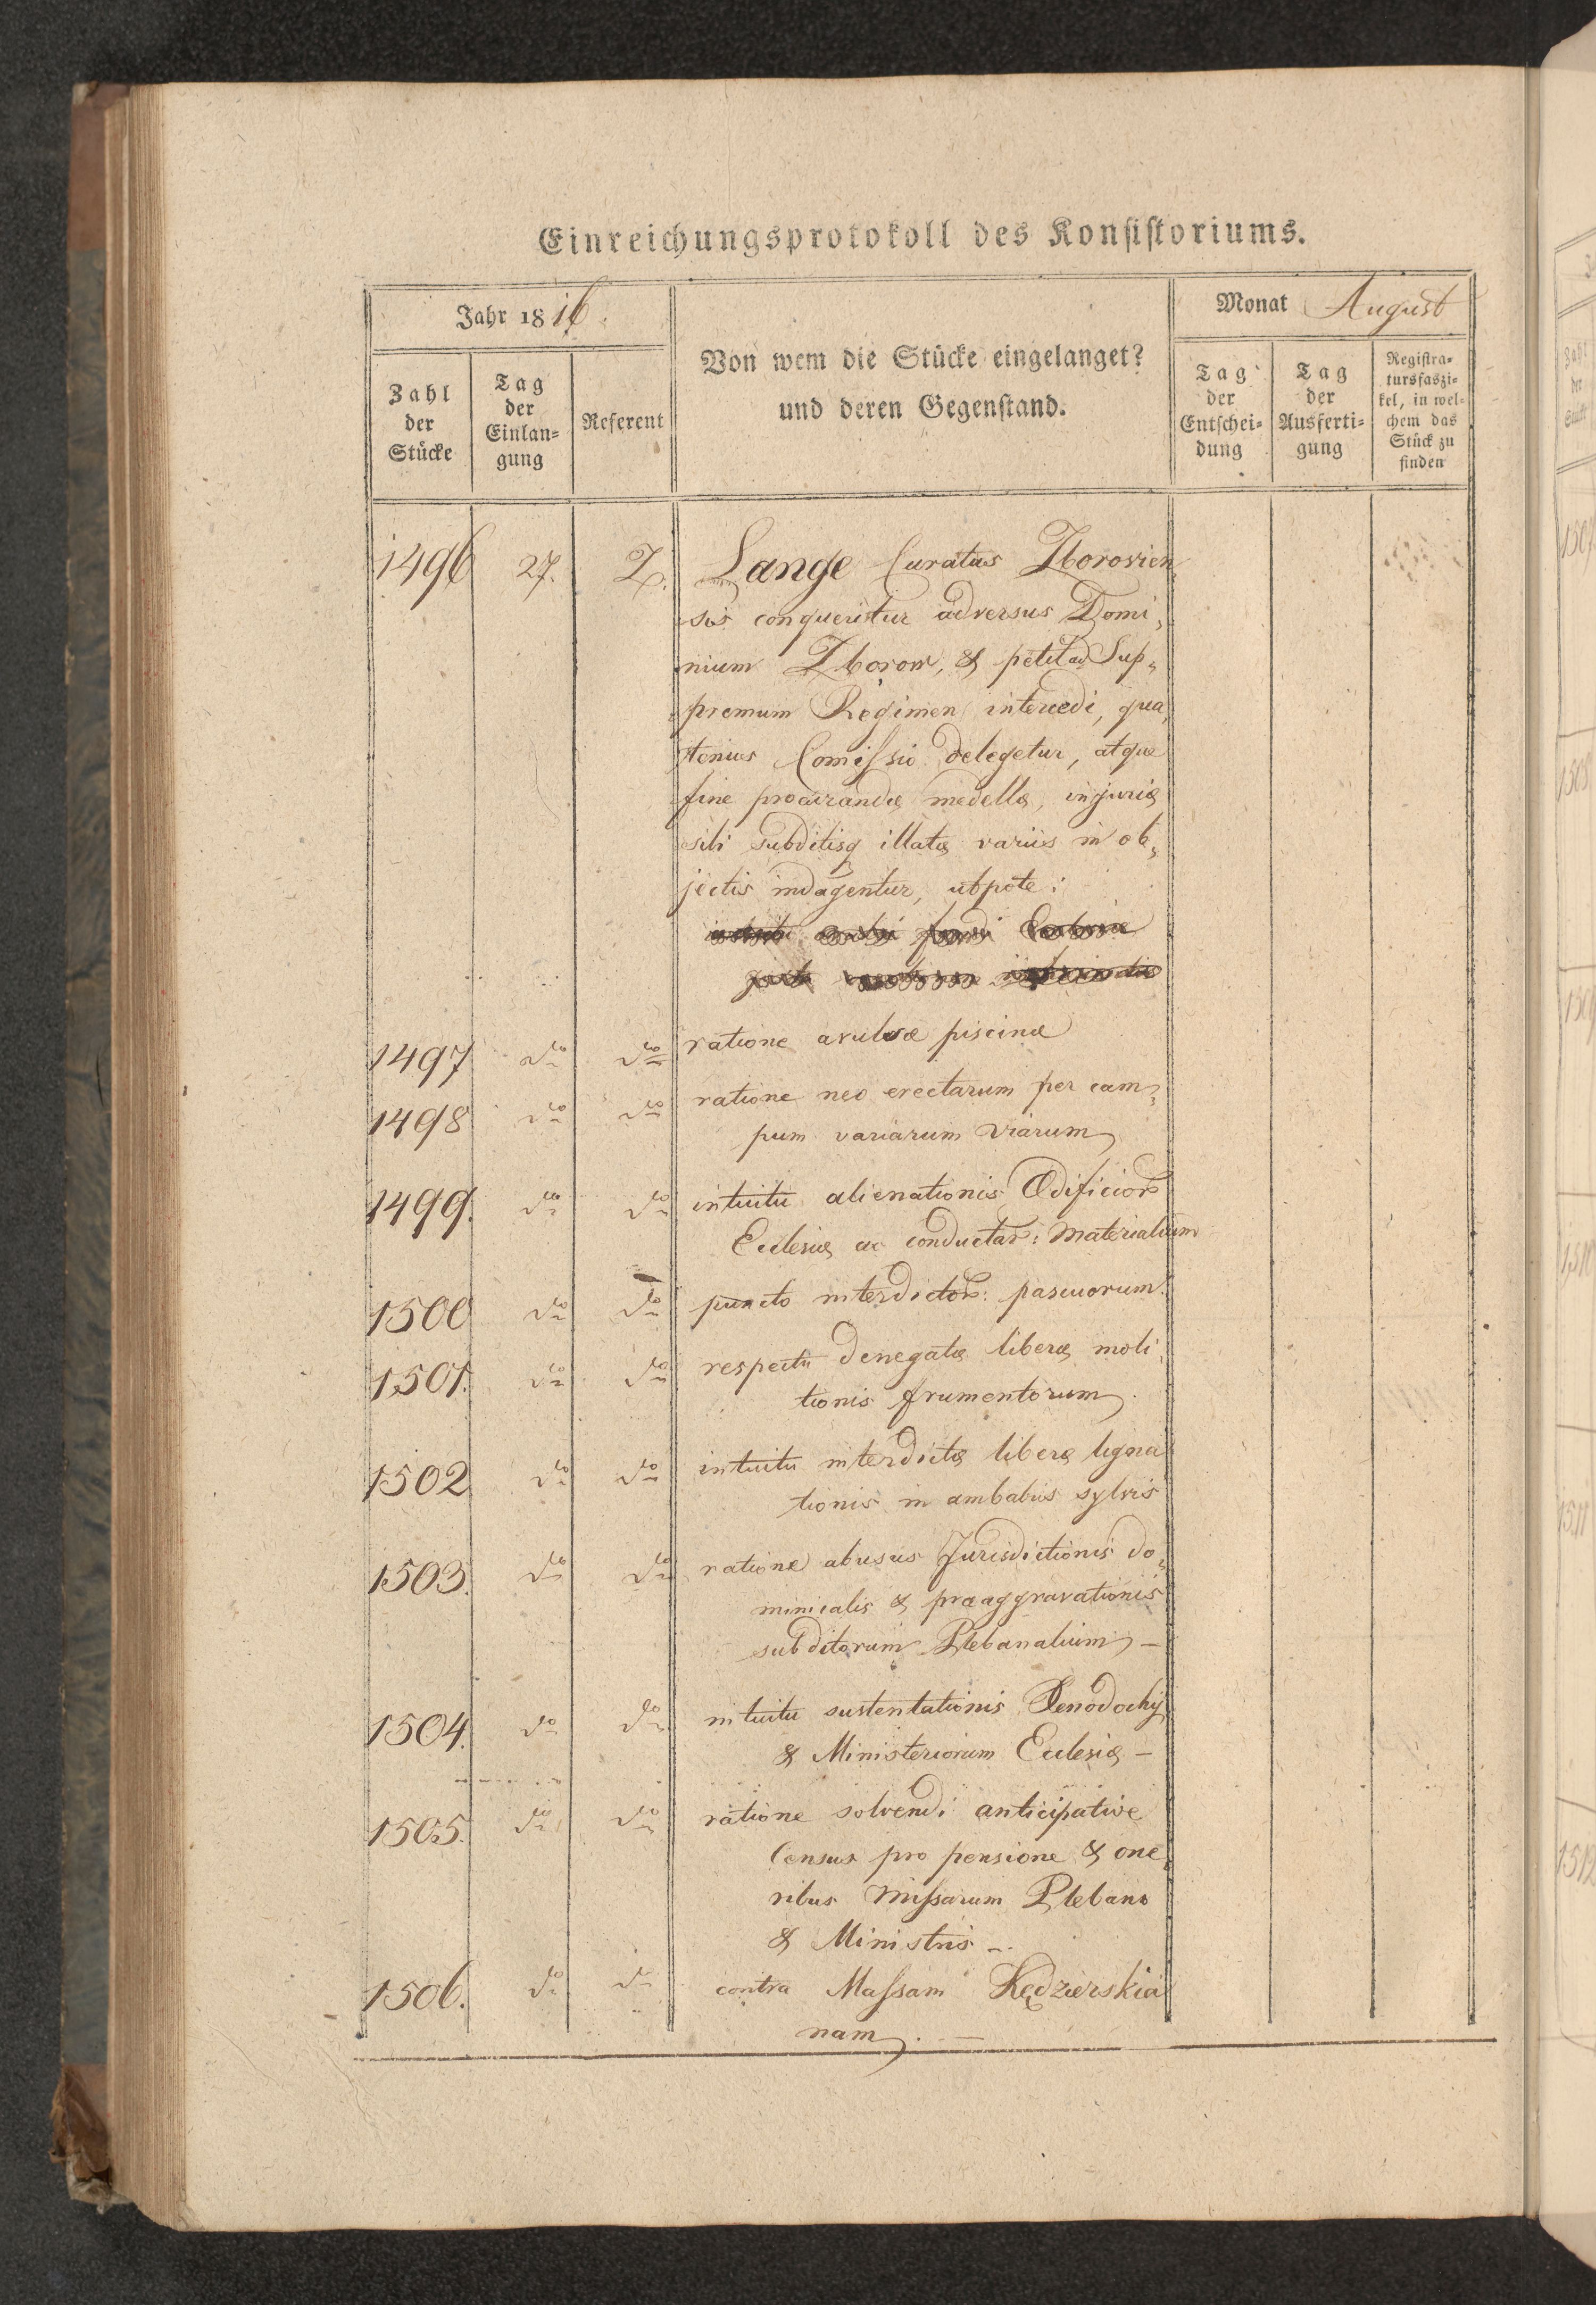 Einreichungsprotokoll des Konsistoriums.
Jahr 1816. Monat August
Zahl der Stücke
Tag der Einlan-gung
Referent
Von wem die Stücke eingelanget?
und deren Gegenstand.
Tag der Entschei-dung
Tag der Ausferti-gung
Registra-tursfaszi-kel, in wel-chem das Stück zu finden
1496 27. Z. Lange Curatus Zborovien
sis conqueritur adversus Domi„
nium Zborow, & petit ad Sup„
premum Regimen intercedi, qua„
tenus Comissio delegetur, atque
fine procurandæ medellæ, injuriæ
sibi subditisq illatæ variis in ob„
jectis indagentur, utpote:
1497 do do ratione avulsæ piscinæ
1498 do do ratione neo erectarum per cam„
pum variarum viarum
1499. do do intuitu alienationis Ædificior
Ecclesiæ ac conductar: Materialium
1500 do do puncto interdictor: pascuorum.
1501. do do respectu denegatæ liberæ moli„
tionis frumentorum.
1502 do do intuitu interdictæ liberæ ligna„
tionis in ambabus sylvis
1503. do do ratione abusus Jurisdictionis do„
minicalis & præaggravationis
subditorum Plebanalium, –
1504. do do intuitu sustentationis Xenodochy
& Ministeriorum Ecclesiæ –
1505. do do ratione solvendi anticipative
Census pro pensione & one„
ribus Missarum Plebano
& Ministris –.
1506. do do contra Massam Kędzierskia
nam. –